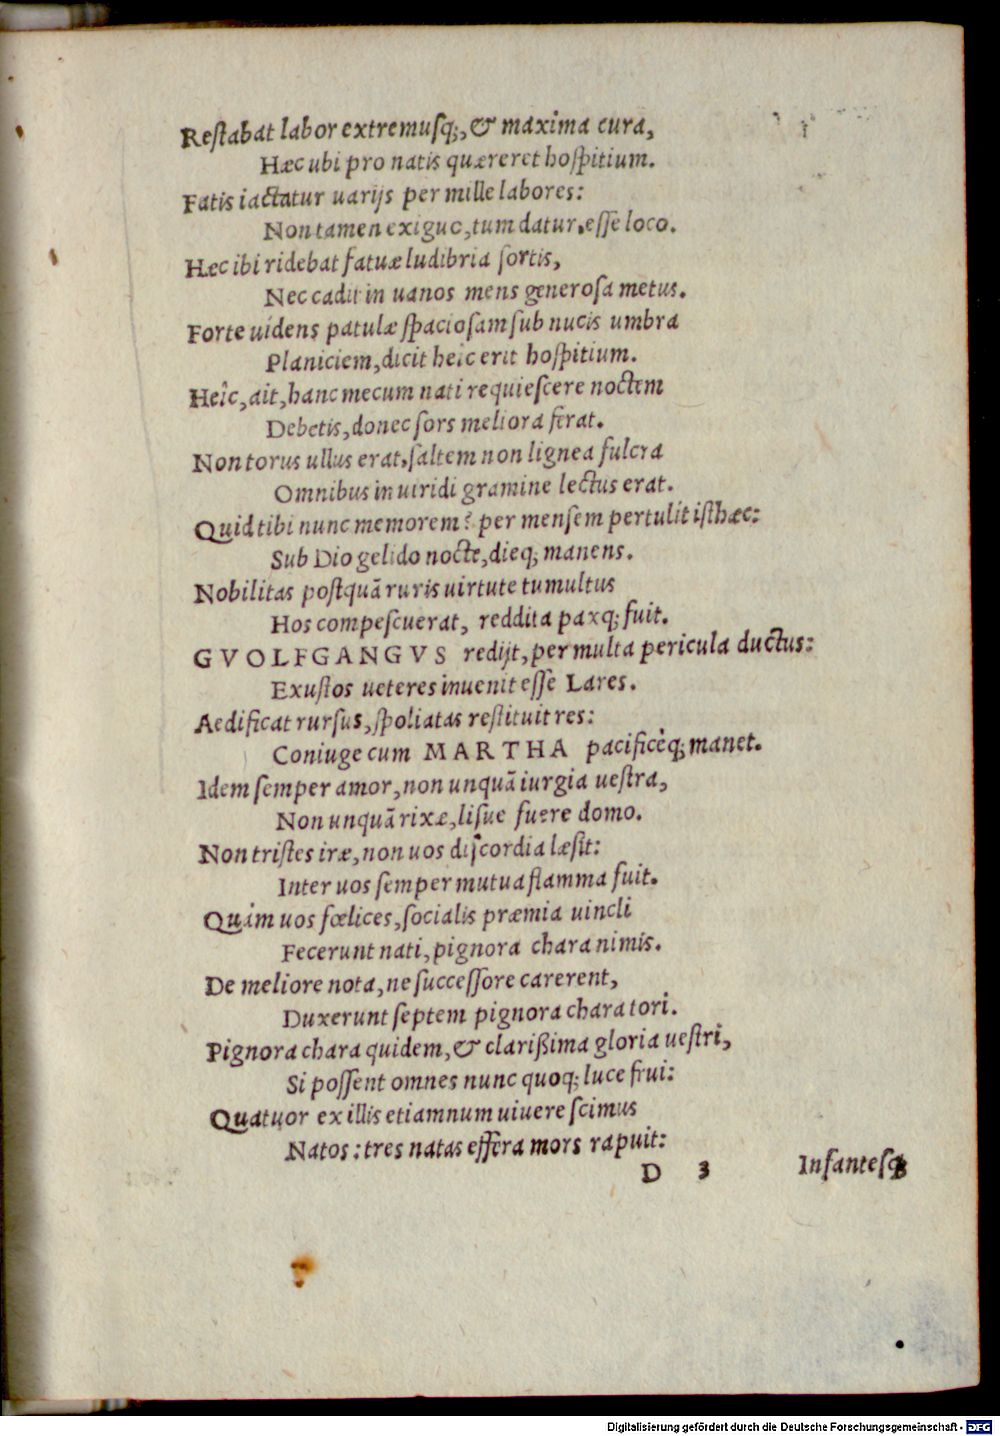 Restabat labor extremusq;, & maxima cura,
Hæc ubi pro natis quæreret hospitium.
Fatis iactatur uarijs per mille labores:
Non tamen exiguo, tum datur, esse loco.
Hæc ibi ridebat fatuæ ludibria sortis,
Nec cadit in uanos mens generosa metus.
Forte uidens patulæ spaciosam sub nucis umbra
Planiciem, dicit heic erit hospitium.
Heîc, ait, hanc mecum nati requiescere noctem
Debetis, donec sors meliora ferat.
Non torus ullus erat, saltem non lignea fulcra
Omnibus in uiridi gramine lectus erat.
Quid tibi nunc memorem? per mensem pertulit isthæc:
Sub Dio gelido nocte, dieq; manens.
Nobilitas postquã ruris uirtute tumultus
Hos compescuerat, reddita paxq; fuit.
GVOLFGANGVS redijt, per multa pericula ductus:
Exustos ueteres inuenit esse Lares.
Aedificat rursus, spoliatas restituit res:
Coniuge cum MARTHA pacificèq; manet.
Idem semper amor, non unquã iurgia uestra,
Non unquã rixæ, lisue fuere domo.
Non tristes iræ, non uos discordia læsit:
Inter uos semper mutua flamma fuit.
Quàm uos fœlices, socialis præmia uincli
Fecerunt nati, pignora chara nimis.
De meliore nota, ne successore carerent,
Duxerunt septem pignora chara tori.
Pignora chara quidem, & clarißima gloria uestri,
Si possent omnes nunc quoq; luce frui:
Quatuor ex illis etiamnum uiuere scimus
Natos: tres natas effera mors rapuit:
D 3 Infantesq;
Digitalisierung gefördert durch die Deutsche Forschungsgemeinschaft - DFG